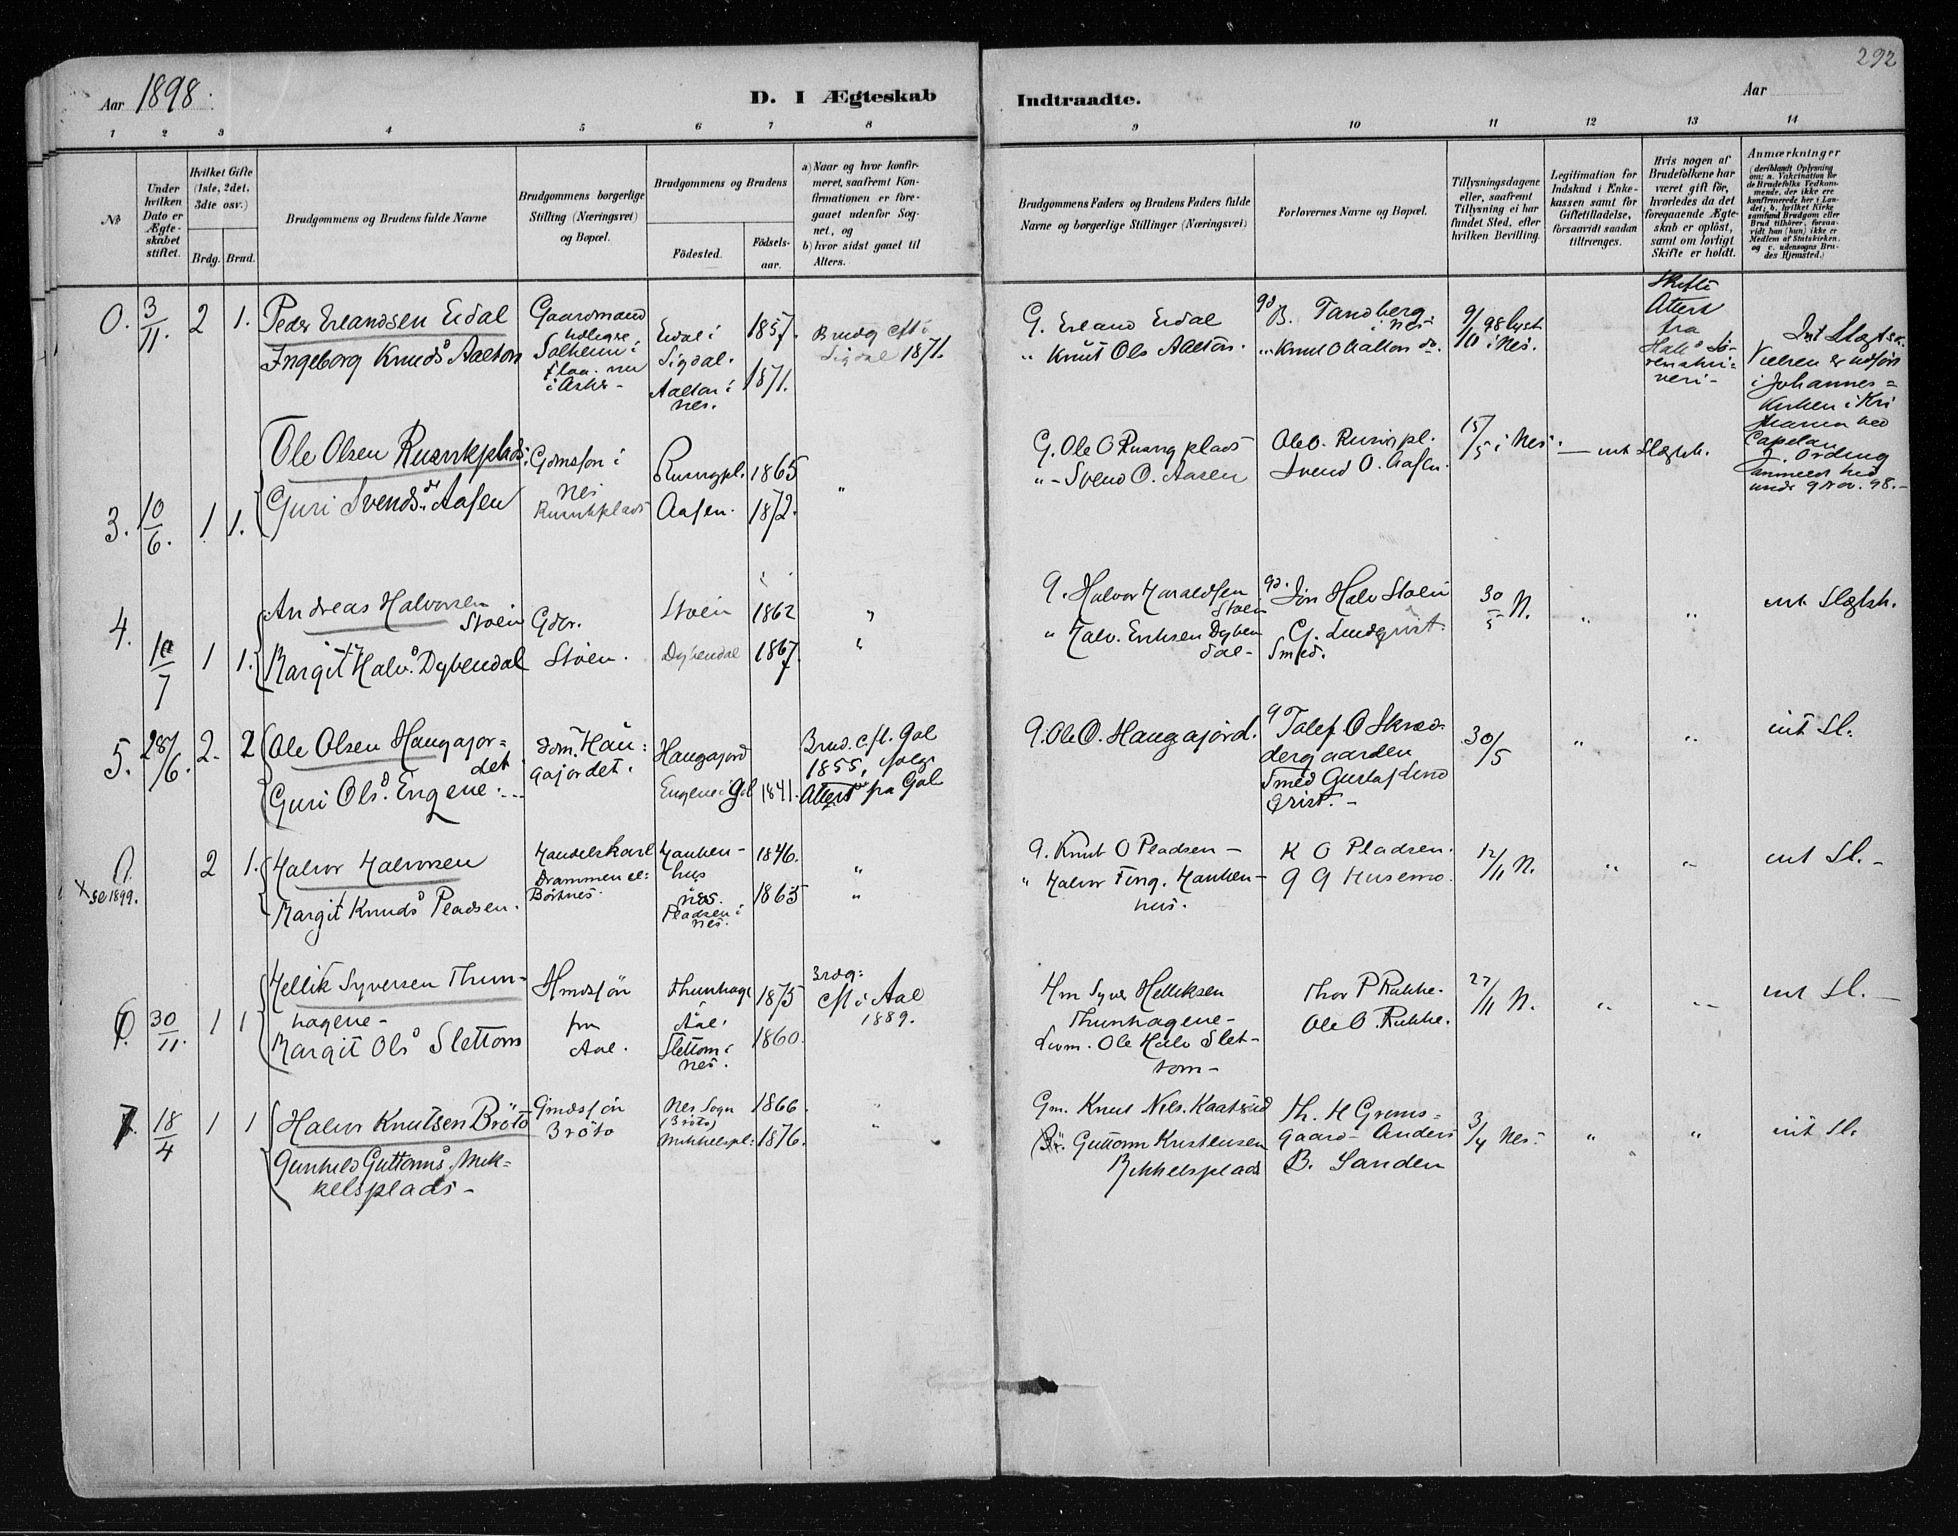 292
Aar 1898.
D. I Ægteskab Indtraadte.
Aar
1 2 3 4 5 6 7 8 9 10 11 12 13 14
No
Under hvilken Dato er Ægteskabet stiftet.
Hvilket Gifte (1ste, 2det, 3die osv.)
Brdg. Brud.
Brudgommens og Brudens fulde Navne
Brudgommens borgerlige Stilling (Næringsvei) og Bopæl.
Brudgommens og Brudens
Födested.
Födselsaar.
a) Naar og hvor konfirmeret, saafremt Konfirmationen er foregaaet udenfor Sognet, og
b) hvor sidst gaaet til Alters.
Brudgommens Faders og Brudens Faders fulde Navne og borgerlige Stillinger (Næringsvei)
Forlovernes Navne og Bopæl.
Tillysningsdagene eller, saafremt Tillysning ei har fundet Sted, efter hvilken Bevilling.
Legitimation for Indskud i Enkekassen samt for Giftetilladelse, forsaavidt saadan tiltrænges.
Hvis nogen af Brudefolkene har været gift för, hvorledes da det foregaaende Ægteskab er oplöst, samt om lovligt Skifte er holdt.
Anmærkninger
(deriblandt Oplysning om; a. Vakcination for de Brudefolks Vedkommende, der ikke ere konfirmerede her i Landet; b. hvilket Kirkesamfund Brudgom eller Brud tilhörer, forsaavidt han (hun) ikke er Medlem af Statskirken, og c. udensogns Brudes Hjemsted.)
0. 3/11. 2 1. Peder Erlandsen Eidal
Ingeborg Knudsd Aalton
Gaardmand
Solheim i
Flaa. nu
Eidal i
Sigdal.
Aalton i
Nes.
1857.
1871.
Brudg cft i
Sigdal 1871.
G. Erland Eidal
" Knut Ols Aalton.
B. Tandberg
i Nes
Knut O Aalton do.
9/10 98 lyst
i Nes.
Skifte
Attest
fra
Int Slægtsk.
Vielsen er udført
i Johannes=
kirken i Kri
stiania ved
Capelan
J. Ording
anmeldt hid
under 9 Nov. 98.-
3. 10/6. 1 1. Ole Olsen Rusnkplads.
Guri Svendsd. Aasen
Gdmsson i
Nes
Rusnkplads
Rusngpl.
Aasen.
1865
1872.
"
G. Ole O Rusngplads
" - Svend O. Aasen
Ole O. Rusnspl.
Svend O. Aasen.
15/5 i Nes.
— int Slægtsk.
4. 10/7 1 1. Andreas Halvorsen
Stoen
Margit Halvsd. Dybendal
Gdbr.
Stoen.
Stoen
Dybendal
1862
1867.
"
"
G. Halvor Haraldsen
Stoen
" Halv. Eriksen Dyben
dal-
Jon Halv Stoen
G. Lindqvist.
Smed.
30/5 N.
"
"
int Slægtsk.
5. 28/6. 2. 2 Ole Olsen Haugajor=
det
Guri Olsd. Engene. --
Gdm. Hau=
gajordet.
Haugajord
Engene i Gol
1841.
Brud. cft. Gol
1855, ifølge
Attest fra Gol
G. Ole O. Haugajord.
Tolef O Skræd
dergaarden
Smed Gustaf Lind
qvist. -
30/5
"
"
int Sl.
0.
x se 1899.
2 1. Halvor Halvorsen
Margit Knudsd Pladsen.
Handelskarl
Drammen el=
Börtnes.
Hauken-
hus
Nes.
Pladsen i
Nes.
1846.
1865
"
"
G. Knut O Pladsen -
" Halvor Fing. Hauken-
hus.
K O Pladsen.
G G Husemo.
12/11 N.
"
"
int Sl. -
30/11. 1 1 Hellik Syversen Thun-
hagene-
Margit Olsd Slettom
Hmdssön
fra
Aal.
Thunhage
i
Aal.
Slettom i
Nes.
1875
1860.
Brdg:
cft i Aal
1889.
Hm Syver Helliksen
Thunhagene-
Ole Halv Slet-
tom-
Thor P Rukke.
Ole O. Rukke.
27/11 N.
"
"
int Sl. -
7. 18/4 1 1 Halvor Knutsen Bröto
Gunhild Guttormsd. Mik-
kelsplads-
Gmdssön
Bröto
Nes Sogn
(Bröto)
Mikkelspl.
1866.
1876.
"
"
Gm. Knut Nils. Kaatsrud
Guttorm Kristensen
Mikkelsplads
Th. H Grims=
gaard- Anders
B. Sanden
3/4 Nes.
"
"
int Sl.